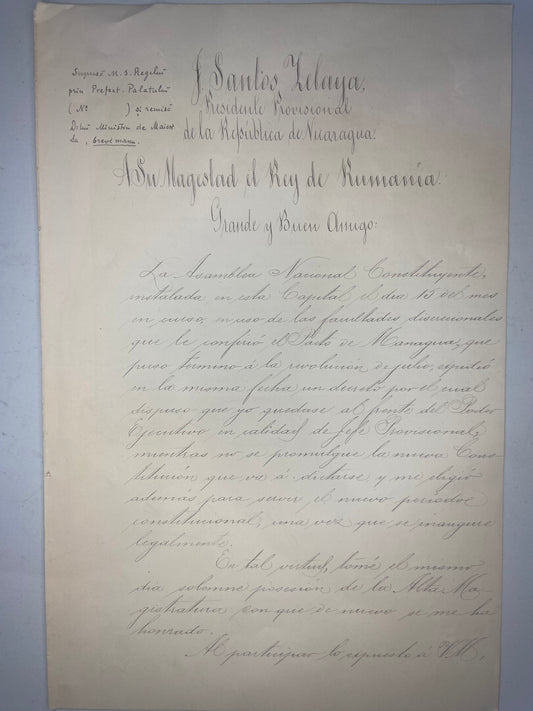 Supusă M. S. Regelui
prin Prefect. Palatului
(No ) și remisă
Dlui Ministru de
la, brevi manu.
J. Santos Zelaya,
Presidente Provisional
de la República de Nicaragua.
A Su Magestad el Rey de Rumanía.
Grande y Buen Amigo:
La Asamblea Nacional Constituyente,
instalada en esta Capital el dia 15 del mes
en curso, en uso de las facultades discrecionales
que le confirió el Pacto de Managua, que
puso término á la revolución de julio, expidió
en la misma fecha un decreto por el cual
dispuso que yo quedase al frente del Poder
Ejecutivo, en calidad de Jefe Provisional,
mientras no se promulgue la nueva Cons-
titución que va á dictarse, y me eligió
ademas para servir el nuevo período
constitucional, una vez que se inaugure
legalmente.
En tal virtud, tomé el mismo
dia solemne posesión de la Alta Ma-
gistratura con que de nuevo se me ha
honrado.
Al participar lo expuesto á V.M.,